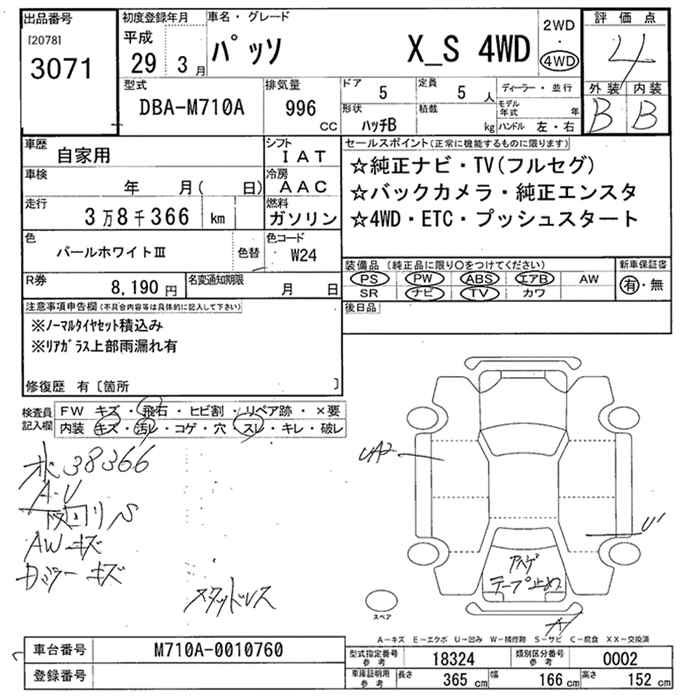 出品番号
[2078]
3071
初度登録年月
平成
29年 3月
車名・グレード
パッソ X_S 4WD
2WD
・
4WD
評価点
4
外装 内装
B B
型式
DBA-M710A
排気量
996 CC
ドア 5
定員 5 人
ディーラー・並行
形状
ハッチB
積載 kg
モデル年式 年
ハンドル 左・右
車歴
自家用
シフト
IAT
車検
年 月( 日)
冷房
AAC
走行
3万8千366 km
燃料
ガソリン
色
パールホワイトⅢ
色替
色コード
W24
R券
8,190円
名変通知期限
月 日
セールスポイント(正常に機能するものに限ります)
☆純正ナビ・TV(フルセグ)
☆バックカメラ・純正エンスタ
☆4WD・ETC・プッシュスタート
装備品(純正品に限り○をつけてください)
PS PW ABS エアB AW
SR ナビ TV カワ
新車保証書
有・無
後日品
注意事項申告欄(不具合内容等は具体的に記入して下さい)
※ノーマルタイヤセット積込み
※リアガラス上部雨漏れ有
修復歴 有〔箇所 〕
検査員記入欄
FW キズ・飛石・ヒビ割・リペア跡・×要
内装 キズ・汚レ・コゲ・穴・スレ・キレ・破レ
38366
A・U
AWキズ
キズ
スタッドレス
UA2
U'
テープ止め
A
スペア
A-キズ E-エクボ U-凹み W-補修跡 S-サビ C-腐食 XX-交換済
車台番号
M710A-0010760
登録番号
型式指定番号 参考
18324
類別区分番号 参考
0002
車庫証明用 参考
長さ 365 cm 幅 166 cm 高さ 152 cm